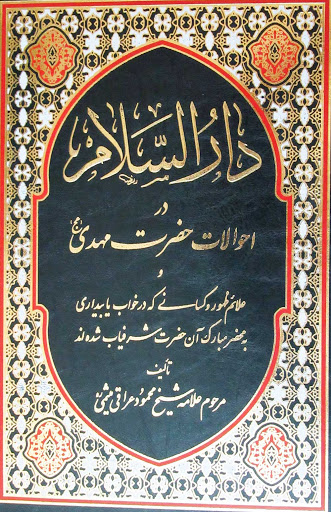 دارُ السَّلام
در
احوالات حضرت مهدی
و
علائم ظهور و کسانی که در خواب یا بیداری
به محضر مبارک آن حضرت شرفیاب شده‌اند
تألیف
مرحوم علامه شیخ محمود عراقی میثمی